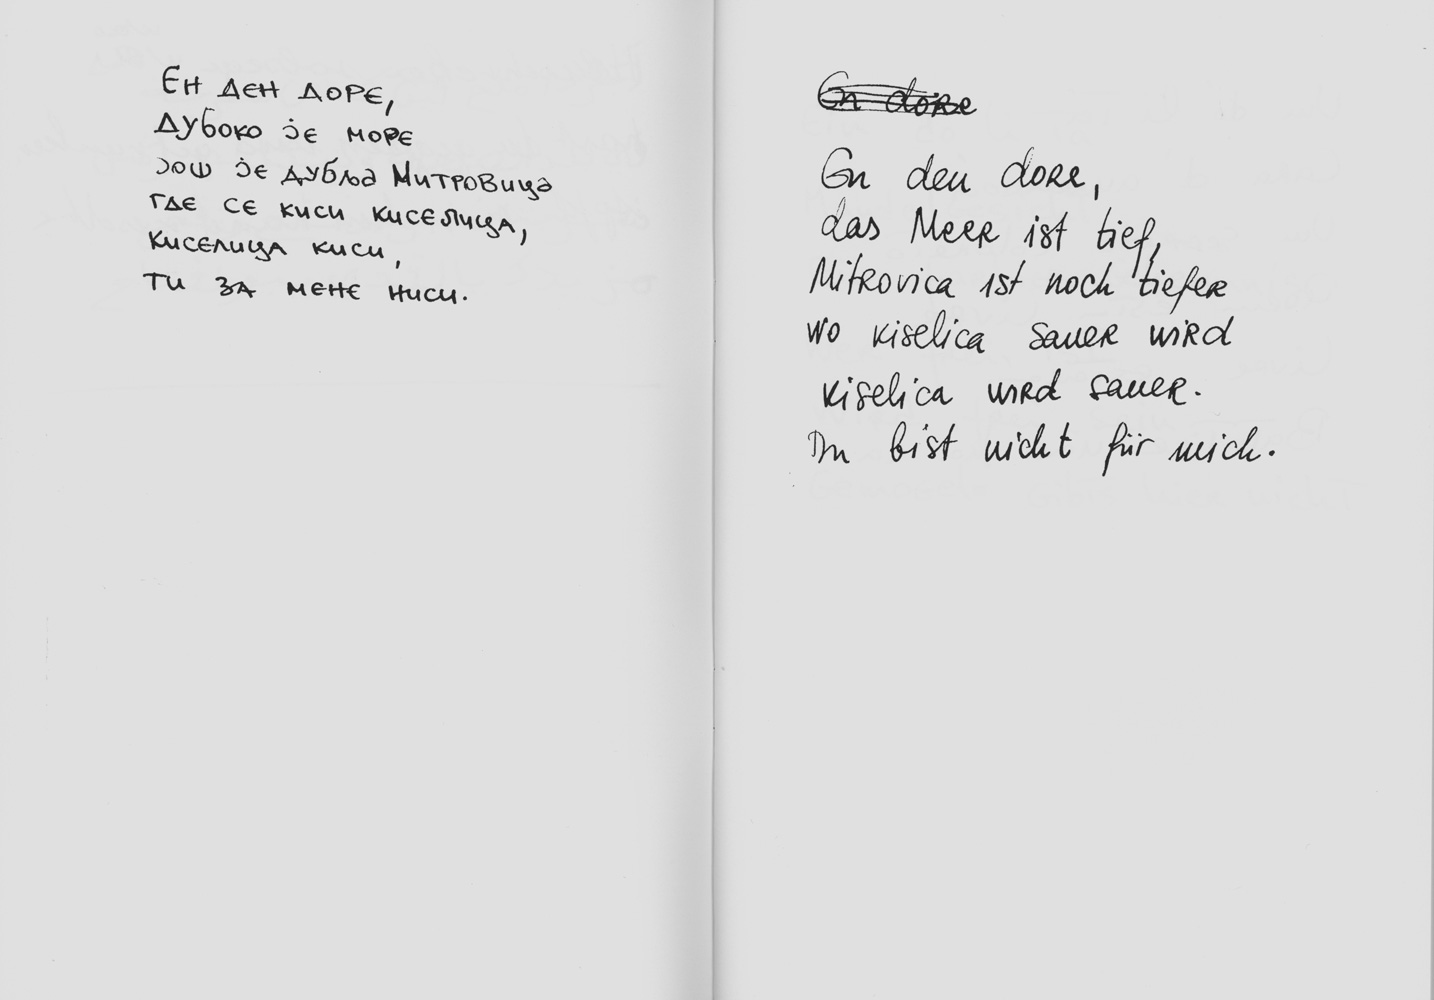 Ен ден доре,
Дубоко је море
Још је дубља Митровица
где се киси киселица,
киселица киси,
ти за мене ниси.
En dore
En den dore,
das Meer ist tief,
Mitrovica ist noch tiefer
wo kiselica sauer wird
kiselica wird sauer.
Du bist nicht für mich.